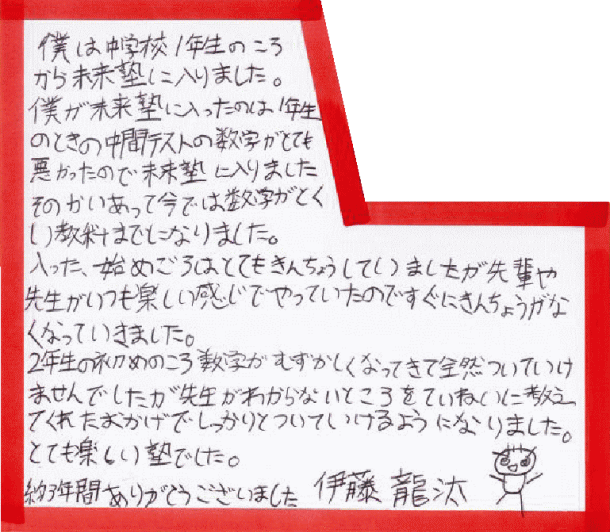 僕は中学校1年生のころ
から未来塾に入りました。
僕が未来塾に入ったのは1年生
のときの中間テストの数学がとても
悪かったので未来塾に入りました
そのかいあって今では数学がとく
い教科までになりました。
入った、始めごろはとてもきんちょうしていましたが先輩や
先生がいつも楽しい感じでやっていたのですぐにきんちょうがな
くなっていきました。
2年生の初めのころ数学がむずかしくなってきて全然ついていけ
ませんでしたが先生がわからないところをていねいに教え
てくれたおかげでしっかりとついていけるようになりました。
とても楽しい塾でした。
約3年間ありがとうございました 伊藤 龍汰